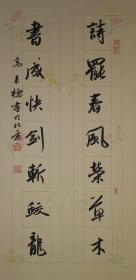 詩罷春風榮草木
書成快劍斬蛟龍
高文穆書於北京